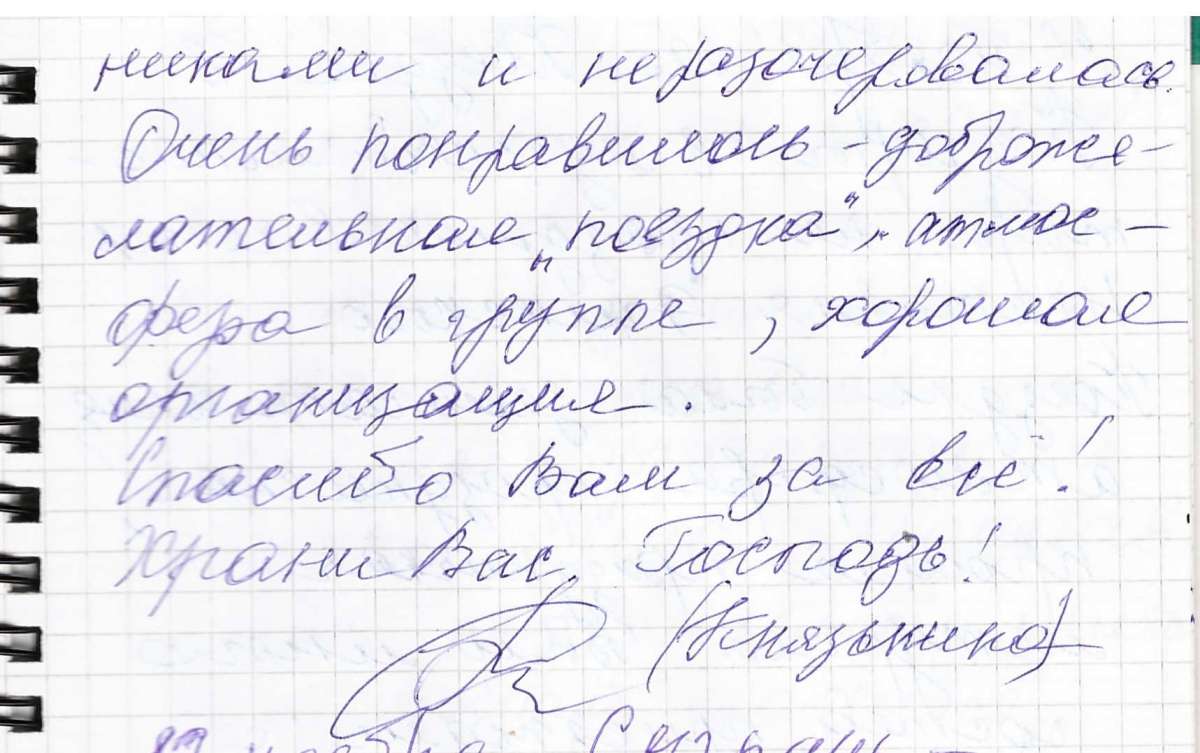 никами и не разочаровалась.
Очень понравилась - доброже-
лательная „поездка", атмос-
фера в группе, хорошая
организация.
Спасибо Вам за всё!
Храни Вас, Господь!
(Князькина)